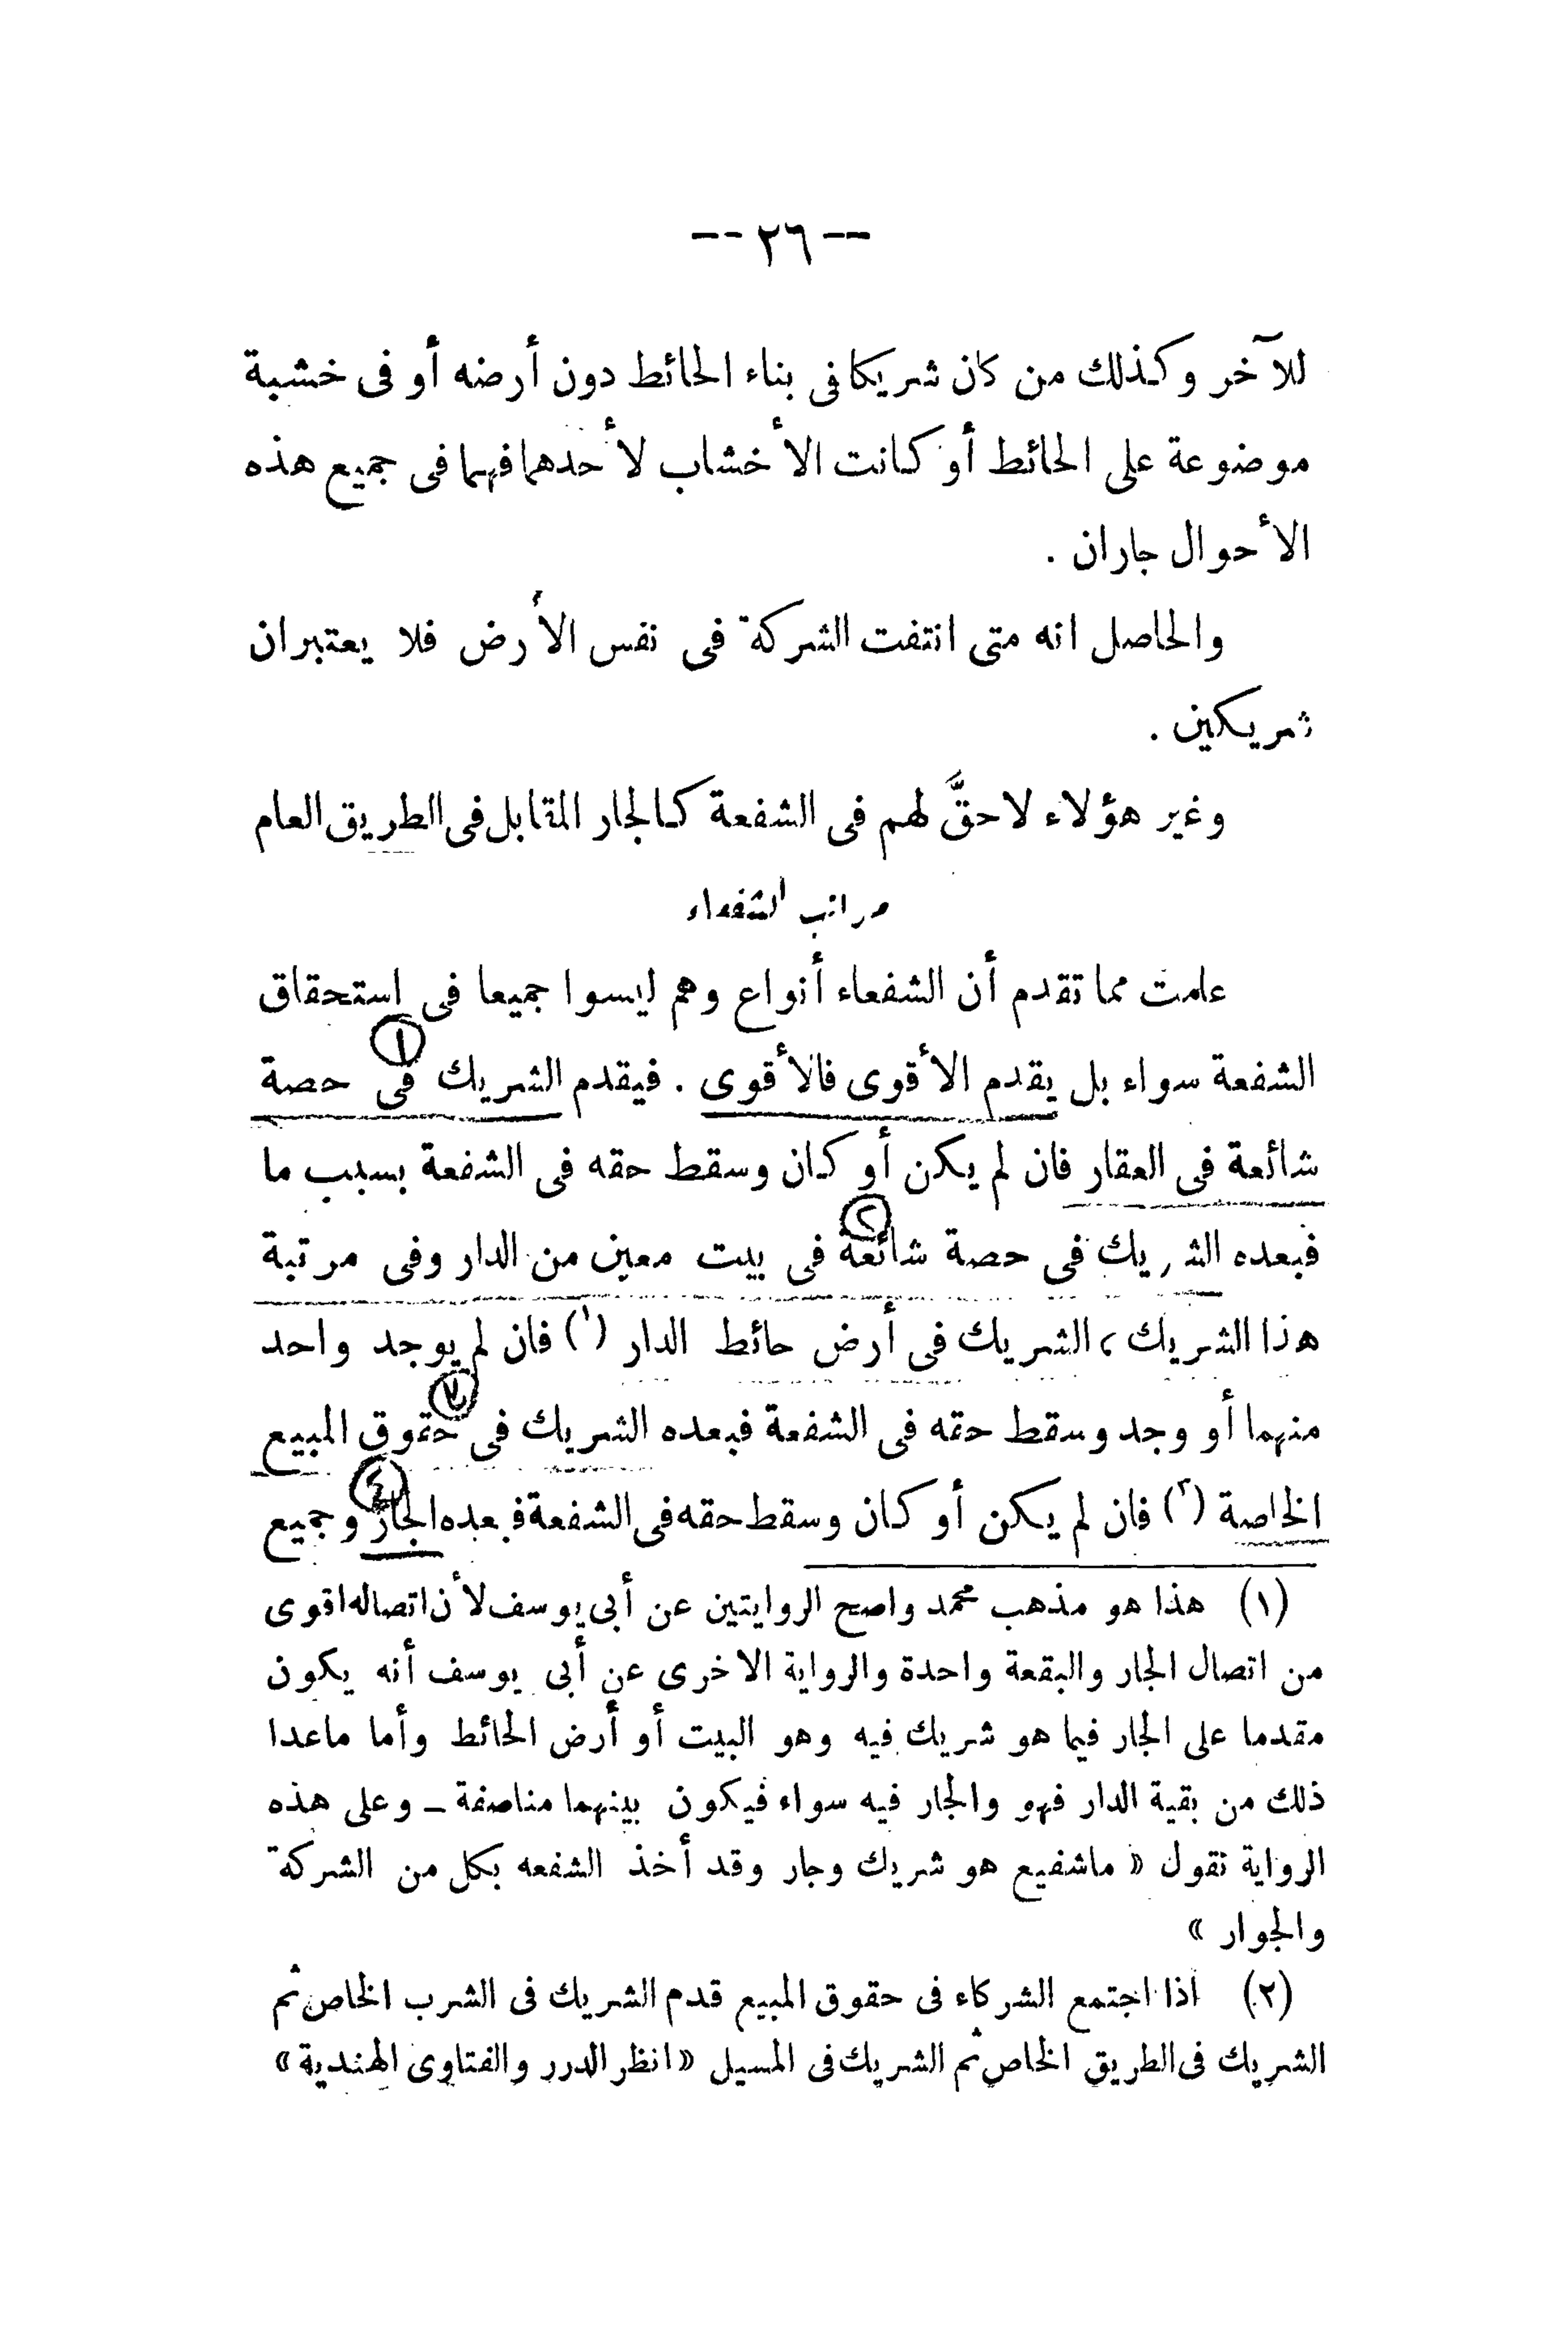 -- ٢٦ --
للآخر وكذلك من كان شريكا فى بناء الحائط دون أرضه أو فى خشبة
موضوعة على الحائط أو كانت الأخشاب لأحدهما فهما فى جميع هذه
الأحوال جاران .
والحاصل انه متى انتفت الشركة فى نفس الأرض فلا يعتبران
شريكين .
وغير هؤلاء لاحقَّ لهم فى الشفعة كالجار المقابل فى الطريق العام
مراتب الشفعاء
علمت مما تقدم أن الشفعاء أنواع وهم ليسوا جميعا فى استحقاق
الشفعة سواء بل يقدم الأقوى فالأقوى . فيقدم الشريك فى ١ حصة
شائعة فى العقار فان لم يكن أو كان وسقط حقه فى الشفعة بسبب ما
فبعده الشريك فى حصة شائعة ٢ فى بيت معين من الدار وفى مرتبة
هذا الشريك ، الشريك فى أرض حائط الدار (١) فان لم يوجد واحد
منهما أو وجد وسقط حقه فى الشفعة فبعده الشريك فى حقوق المبيع
الخاصة (٢) فان لم يكن أو كان وسقط حقه فى الشفعة فبعده الجار ٤ وجميع
(١) هذا هو مذهب محمد واصح الروايتين عن أبى يوسف لأن اتصاله اقوى
من اتصال الجار والبقعة واحدة والرواية الاخرى عن أبى يوسف أنه يكون
مقدما على الجار فيما هو شريك فيه وهو البيت أو أرض الحائط وأما ماعدا
ذلك من بقية الدار فهو والجار فيه سواء فيكون بينهما مناصفة ــ وعلى هذه
الرواية نقول « ماشفيع هو شريك وجار وقد أخذ الشفعه بكل من الشركة
والجوار »
(٢) اذا اجتمع الشركاء فى حقوق المبيع قدم الشريك فى الشرب الخاص ثم
الشريك فى الطريق الخاص ثم الشريك فى المسيل « انظر الدرر والفتاوى الهندية »